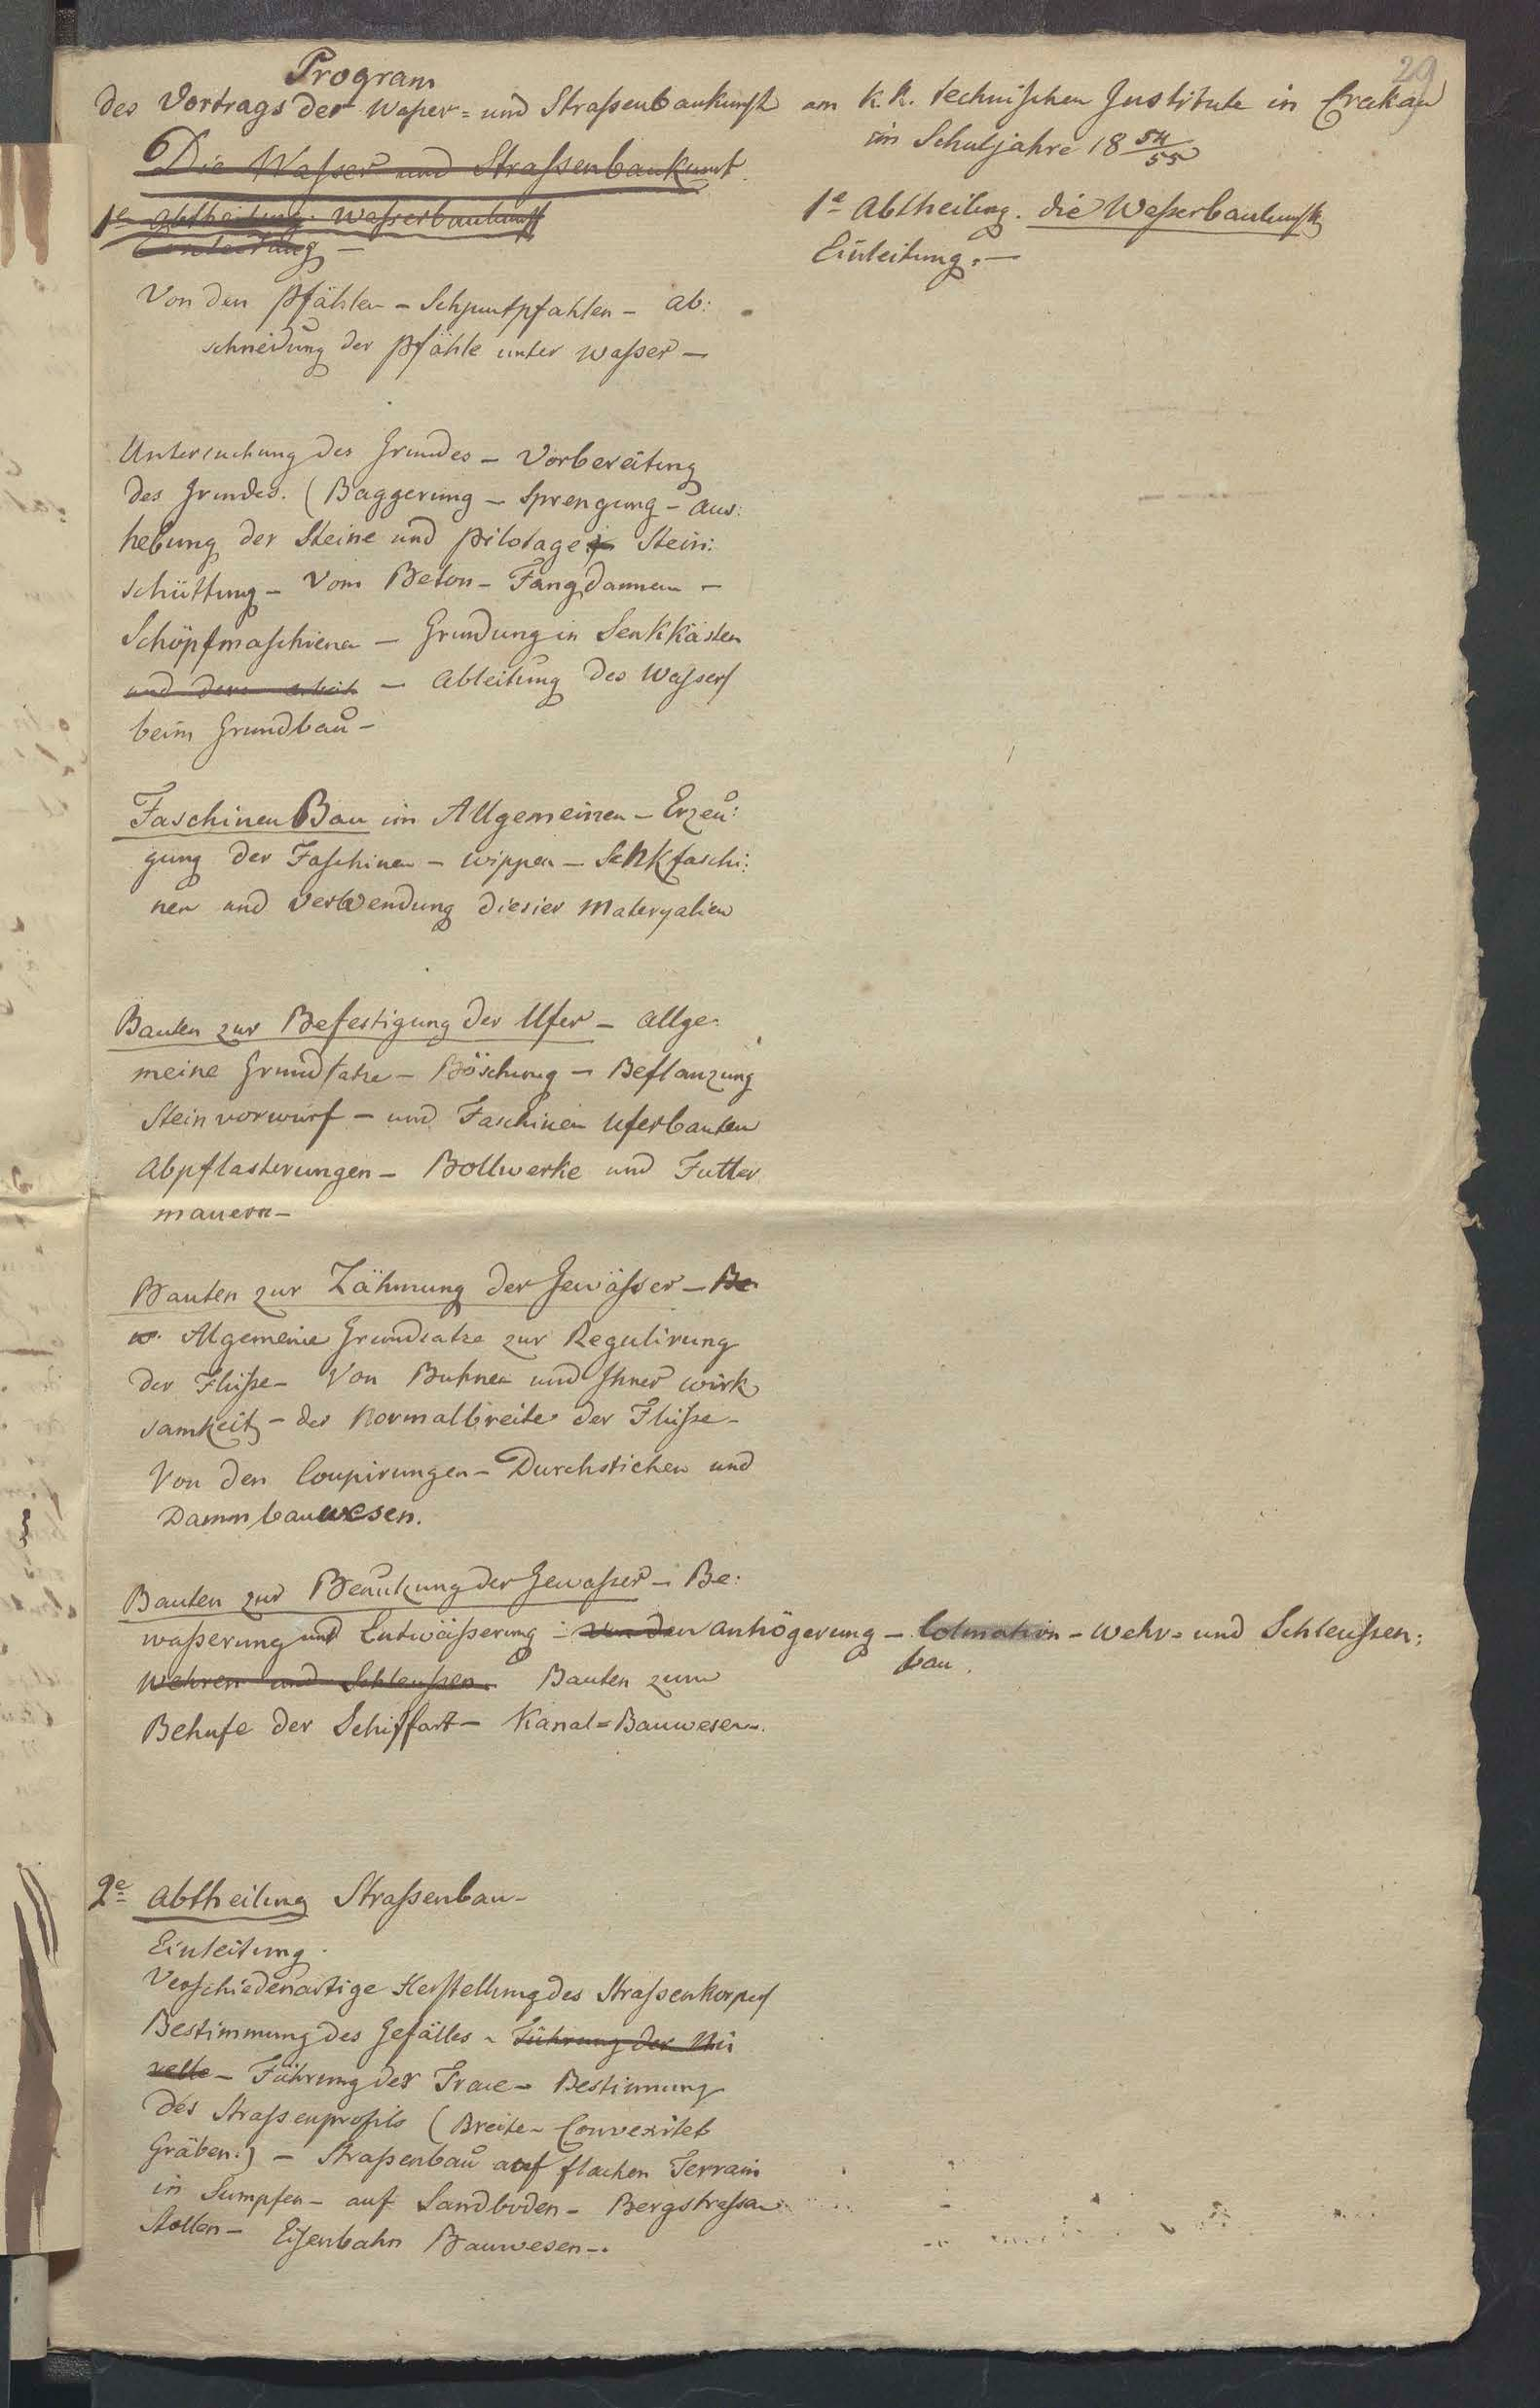 29
Program
des Vortrags der Waßer= und Straßenbaukunst am K. K. technischen Institute in Crakau
im Schuljahre 18 54/55
Die Waßer und Straßenbaukunst.
1e Abtheilung. Waßerbaukunst
Einleitung —
1e Abtheilung. die Waßerbaukunst
Einleitung. —
Von den Pfählen — Schpuntpfahlen — ab:
schneidung der Pfähle unter Waßer —
Untersuchung des Grundes — Vorbereitung
des Grundes. (Baggerung — Sprengung — Aus:
hebung der Steine und Pilotage Stein:
schüttung — Vom Beton — Fangdammen —
Schöpfmaschienen — Grundung in Senkkästen
und — Ableitung des Wassers
beim Grundbau —
Faschinen Bau im Allgemeinen — Erzeu:
gung der Faschinen — wippen — Senkfaschi:
nen und Verwendung diesier Materyalien
Bauten zur Befestigung der Ufer — Allge:
meine Grundsatze — Böschung — Beflanzung
Steinvorwurf — und Faschinen Uferbauten
Abpflasterungen — Bollwerke und Futter
mauern —
Bauten zur Zähmung der Gewäßer — Be
Algemeine Grundsatze zur Regulirung
der Flüße — Von Buhnen und Ihrer wirk
samkeit — der Normalbreite der Flüße —
Von den Coupirungen — Durchstichen und
Dammbauwesen.
Bauten zur Benützung der Gewaßer — Be:
waßerung und Entwäßerung — Von den Anhögerung — Colmation — Wehr= und Schleußen:
bau.
Wehren und Schleußen. Bauten zum
Behufe der Schiffart — Kanal=Bauwesen.
2e Abtheilung Straßenbau —
Einleitung.
Verschiedenartige Herstellung des Straßenkorpers
Bestimmung des Gefälles — Führung der Ni
velle — Führung der Trace — Bestimmung
des Straßenprofils (Breite — Convexitet
Gräben.) — Straßenbau auf flachen Terrain
in Sumpfen — auf Sandboden — Bergstraßen
Stollen — Eisenbahn Bauwesen —.